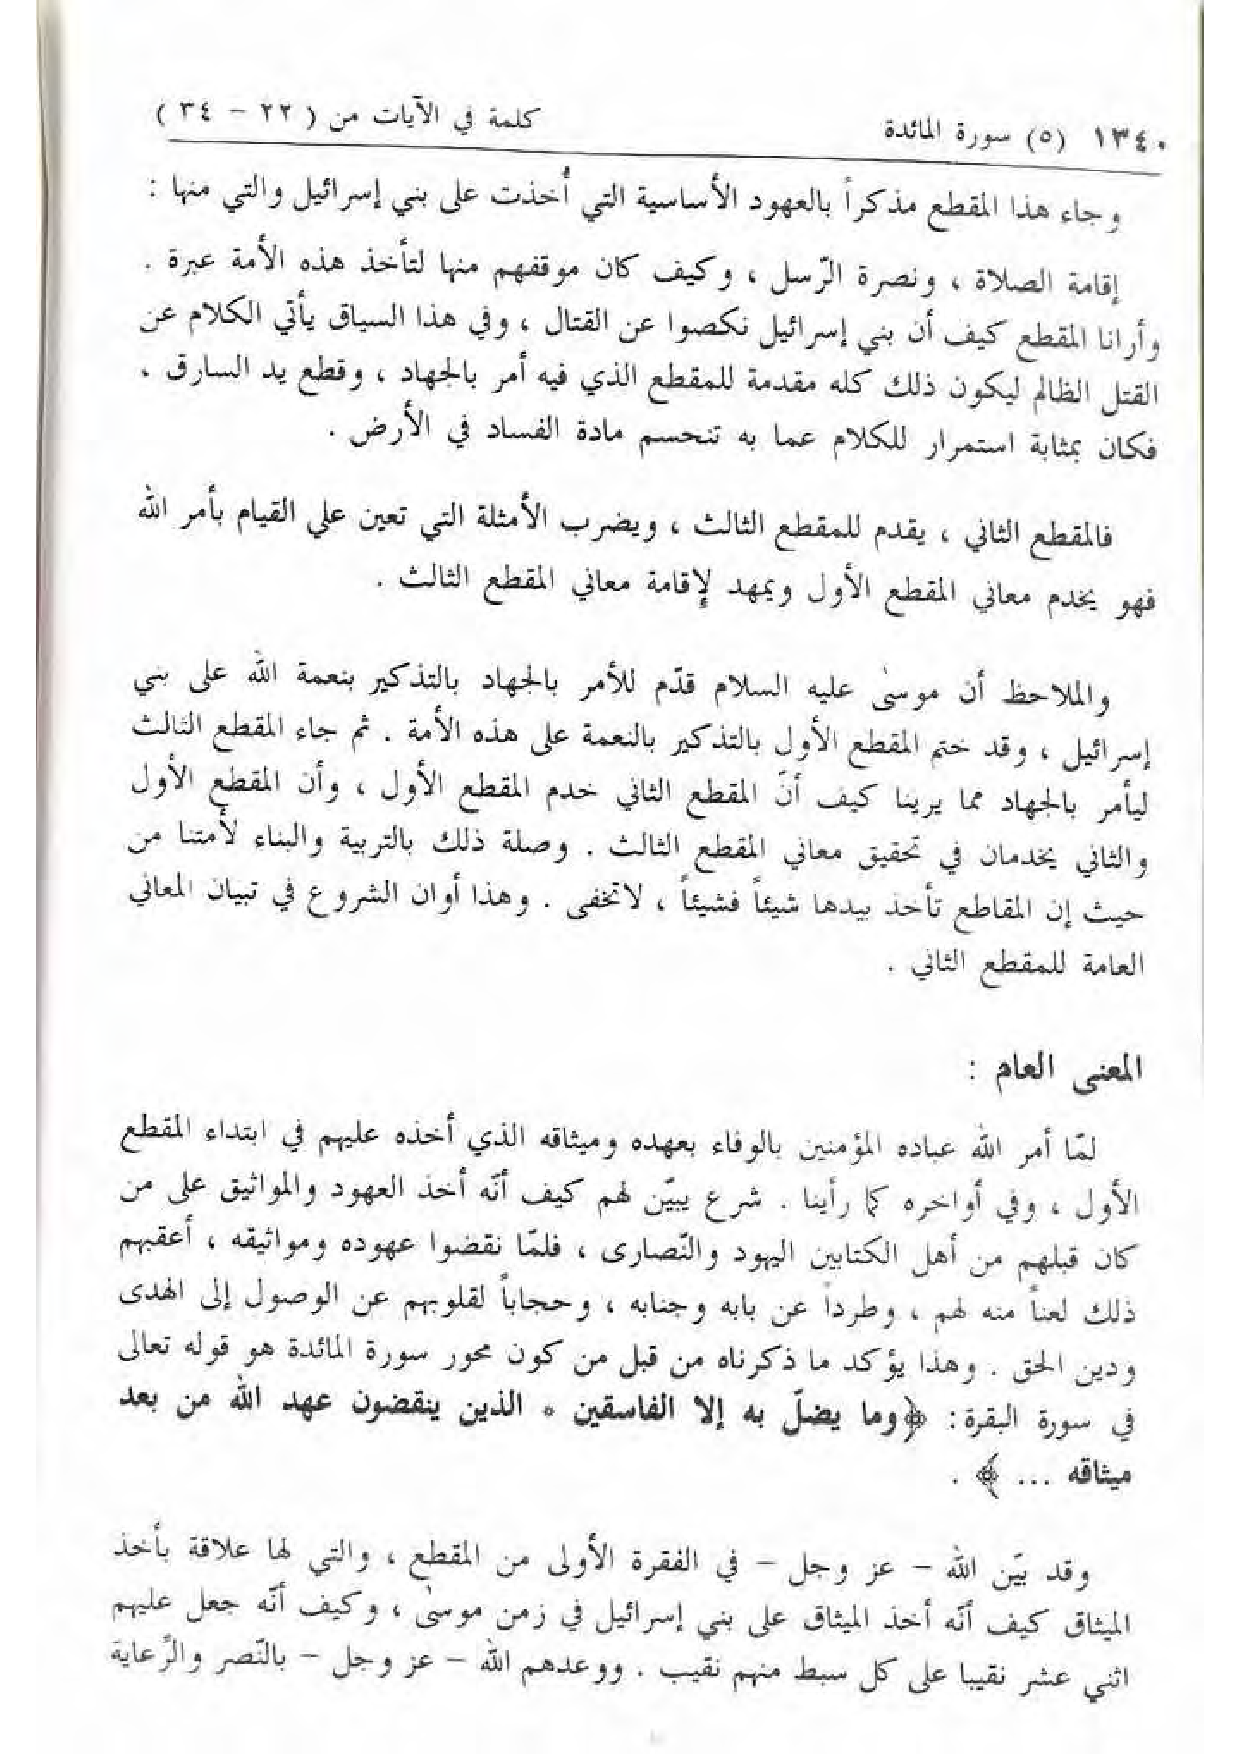 ١٣٤٠ (٥) سورة المائدة
كلمة في الآيات من ( ٢٢ – ٣٤ )
وجاء هذا المقطع مذكراً بالعهود الأساسية التي أُخذت على بني إسرائيل والتي منها :
إقامة الصلاة ، ونصرة الرّسل ، وكيف كان موقفهم منها لتأخذ هذه الأمة عبرة .
وأرانا المقطع كيف أن بني إسرائيل نكصوا عن القتال ، وفي هذا السياق يأتي الكلام عن
القتل الظالم ليكون ذلك كله مقدمة للمقطع الذي فيه أمر بالجهاد ، وقطع يد السارق ،
فكان بمثابة استمرار للكلام عما به تنحسم مادة الفساد في الأرض .
فالمقطع الثاني ، يقدم للمقطع الثالث ، ويضرب الأمثلة التي تعين على القيام بأمر الله
فهو يخدم معاني المقطع الأول ويمهد لإقامة معاني المقطع الثالث .
والملاحظ أن موسىٰ عليه السلام قدّم للأمر بالجهاد بالتذكير بنعمة الله على بني
إسرائيل ، وقد ختم المقطع الأول بالتذكير بالنعمة على هذه الأمة . ثم جاء المقطع الثالث
ليأمر بالجهاد مما يرينا كيف أنّ المقطع الثاني خدم المقطع الأول ، وأن المقطع الأول
والثاني يخدمان في تحقيق معاني المقطع الثالث . وصلة ذلك بالتربية والبناء لأمتنا من
حيث إن المقاطع تأخذ بيدها شيئاً فشيئاً ، لاتخفى . وهذا أوان الشروع في تبيان المعاني
العامة للمقطع الثاني .
المعنى العام :
لمّا أمر الله عباده المؤمنين بالوفاء بعهده وميثاقه الذي أخذه عليهم في ابتداء المقطع
الأول ، وفي أواخره كما رأينا . شرع يبيّن لهم كيف أنّه أخذ العهود والمواثيق على من
كان قبلهم من أهل الكتابين اليهود والنّصارى ، فلمّا نقضوا عهوده ومواثيقه ، أعقبهم
ذلك لعناً منه لهم ، وطرداً عن بابه وجنابه ، وحجاباً لقلوبهم عن الوصول إلى الهدى
ودين الحق . وهذا يؤكد ما ذكرناه من قبل من كون محور سورة المائدة هو قوله تعالى
في سورة البقرة: ﴿وما يضلّ به إلا الفاسقين * الذين ينقضون عهد الله من بعد
ميثاقه ... ﴾ .
وقد بيّن الله – عز وجل – في الفقرة الأولى من المقطع ، والتي لها علاقة بأخذ
الميثاق كيف أنّه أخذ الميثاق على بني إسرائيل في زمن موسىٰ ، وكيف أنّه جعل عليهم
اثني عشر نقيبا على كل سبط منهم نقيب . ووعدهم الله – عز وجل – بالنّصر والرّعاية